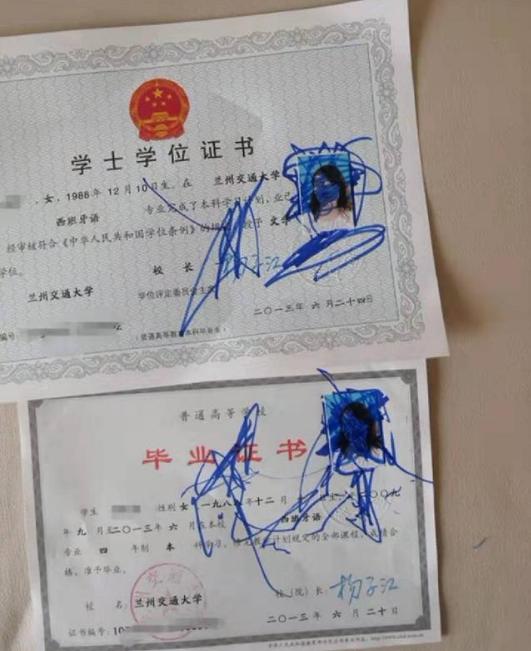 学士学位证书
，女，1988年12月10日生。在 兰州交通大学
西班牙语 专业完成了本科学习计划，业已
经审核符合《中华人民共和国学位条例》的规 授予 文学
学位。
校 长
兰州交通大学 学位评定委员会主席
编号
二〇一三年 六 月二十四日
（普通高等教育本科毕业生）
普通高等学校
毕业证书
学生 性别 女，一九八八年十二月 日生，二〇〇九
年 九 月至二〇一三年 六 月在本校 西班牙语
专业 四 年制 本 科学习，修完教学计划规定的全部课程，成绩合
格，准予毕业。
校 名：兰州交通大学 校（院）长：杨子江
证书编号：10
二〇一三年 六 月二十日